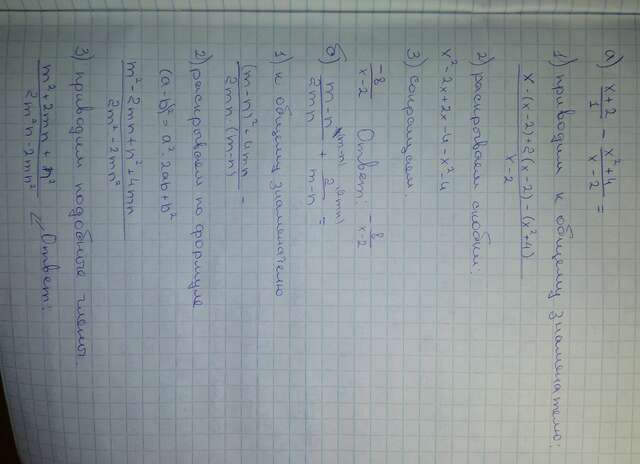 а) x+2/1 - x²+4/x-2 =
1) приводим к общему знаменателю:
x·(x-2)+2(x-2)-(x²+4)/x-2
2) раскрываем скобки:
x²-2x+2x-4-x²-4
3) сокращаем.
-8/x-2 Ответ: -8/x-2
б) m-n/2mn (m-n) + 2/m-n (2mn) =
1) к общему знаменателю
(m-n)²+4mn/2mn·(m-n) =
2) раскрываем по формуле
(a-b)²=a²-2ab+b²
m²-2mn+n²+4mn/2m²-2mn²
3) приводим подобные члены.
m²+2mn+n²/2m²n-2mn² Ответ: